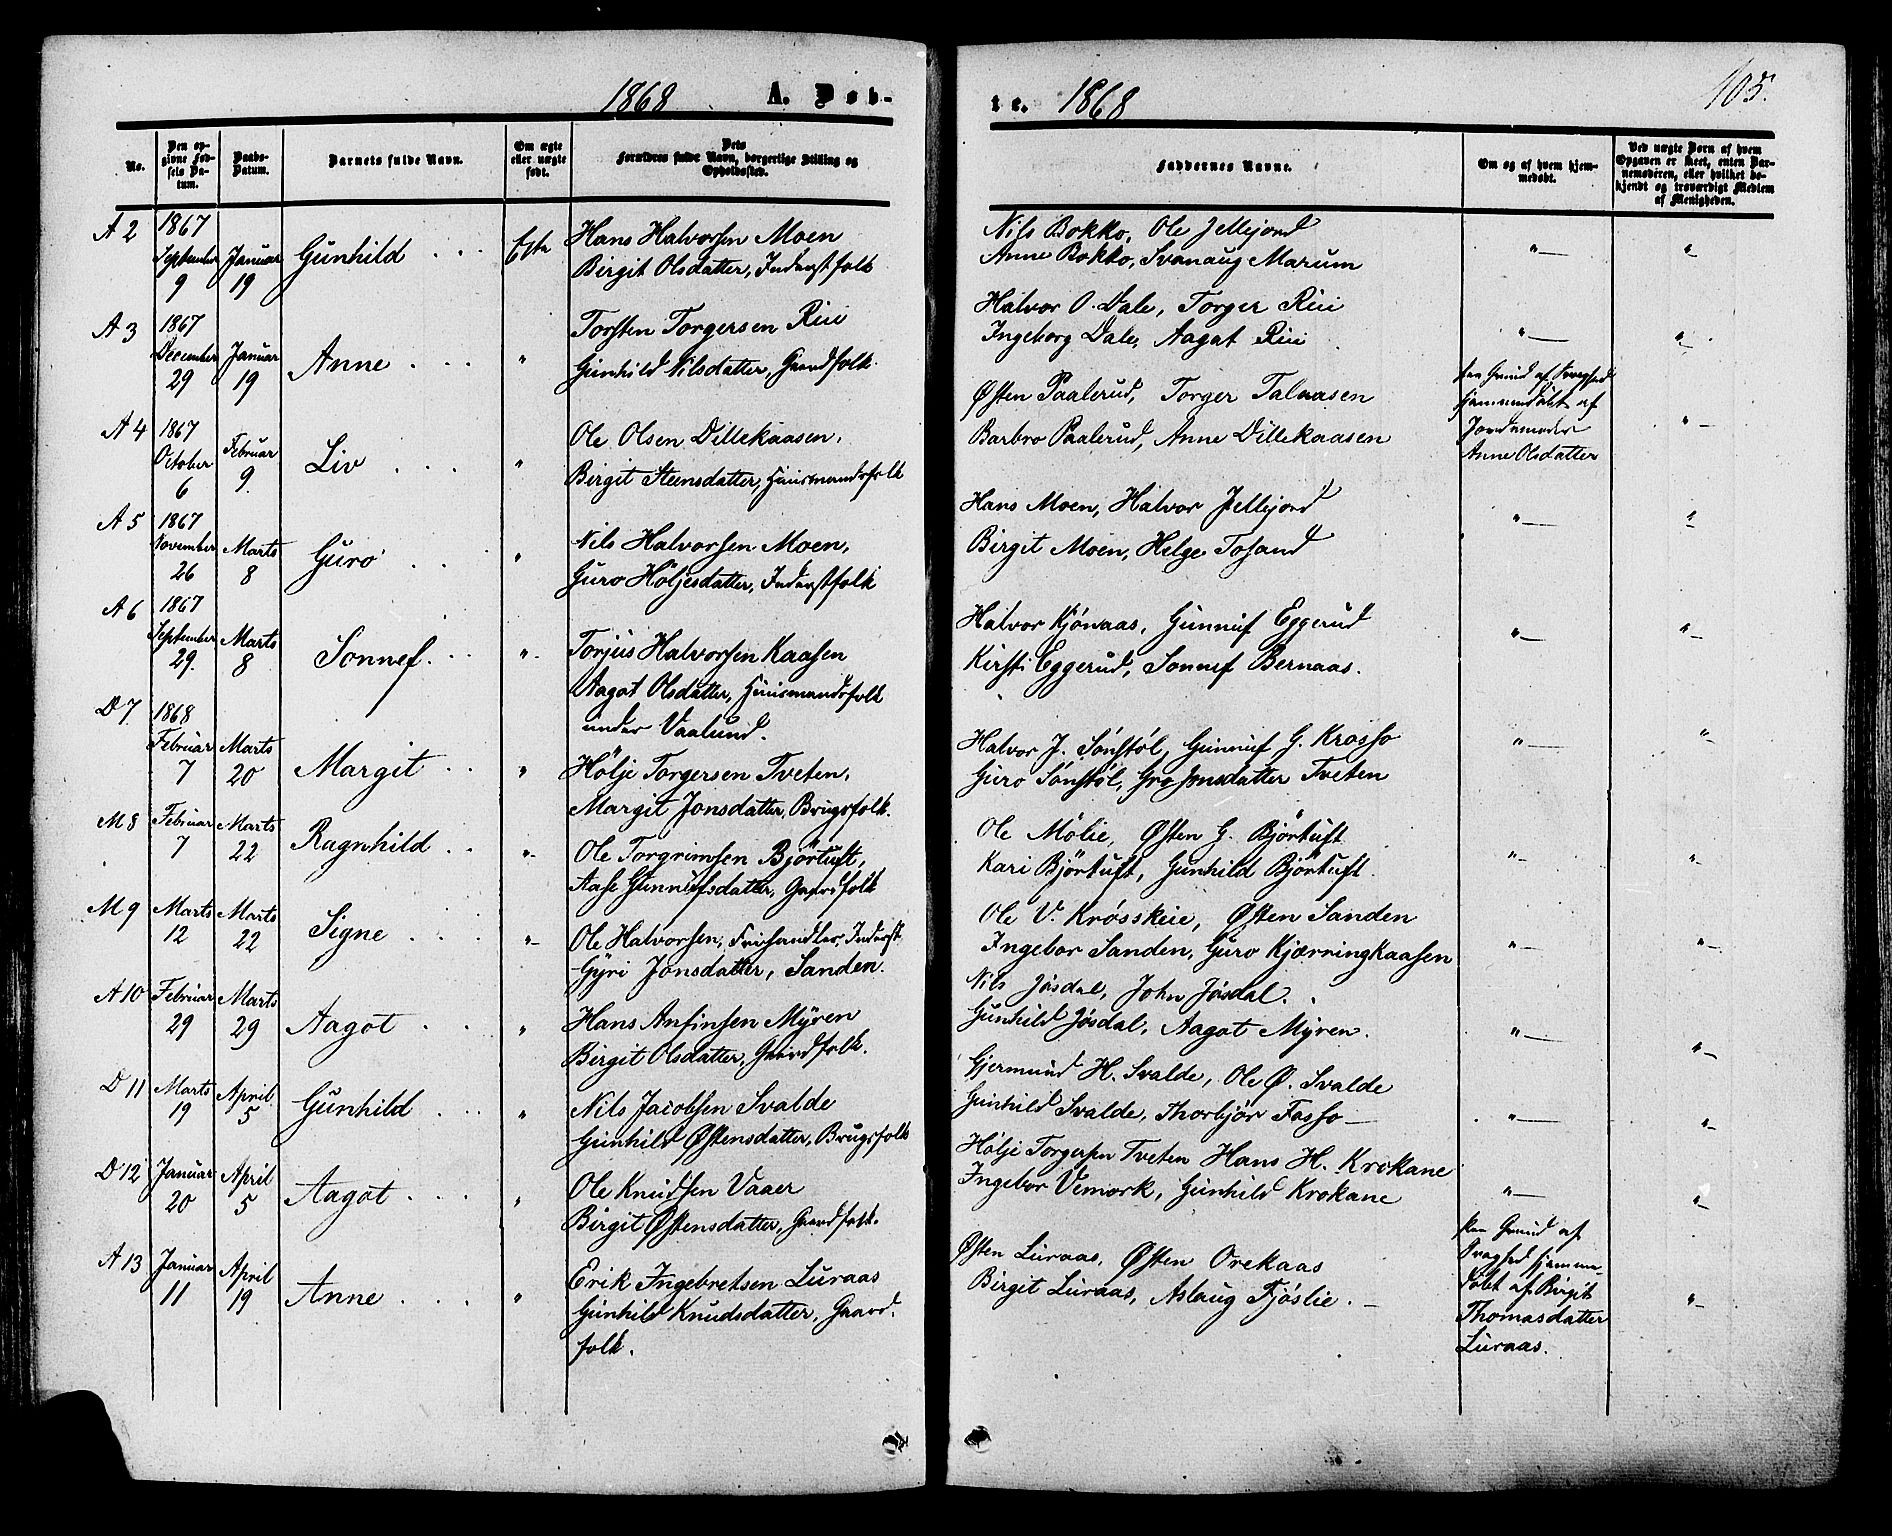 1868 A. Døb-
te. 1868
105.
No.
Den op-
givne Fød-
sels Da-
tum.
Daabs-
Datum.
Barnets fulde Navn.
Om ægte
eller uægte
født.
Dets
Forældres fulde Navn, borgerlige Stilling og
Opholdssted.
Faddernes Navne.
Om og af hvem hjem-
medøbt.
Ved uægte Børn af hvem
Opgaven er skeet, enten Bar-
nemoderen, eller hvilket be-
kjendt og troværdigt Medlem
af Menigheden.
A 2
1867
September
9
Januar
19
Gunhild
Egte
Hans Halvorsen Moen
Birgit Olsdatter, Inderstfolk
Nils Bokko, Ole Jellejord
Anne Bokko, Svanaug Marum
A 3
1867
December
29
Januar
19
Anne
"
Torsten Torgersen Rui
Gunhild Nilsdatter, Gaardfolk.
Halvor O. Dale, Torger Rui
Ingeborg Dale, Aagat Rui
A 4
1867
October
6
Februar
9.
Liv
"
Ole Olsen Dillekaasen,
Birgit Steensdatter, Huusmandsfolk
Østen Paalerud, Torger Talaasen
Barbro Paalerud, Anne Dillekaasen
paa Grund af Svaghed
hjemmedøbt af
Jordemoder
Anne Olsdatter
A 5
1867
November
26
Marts
8
Guro
"
Nils Halvorsen Moen,
Guro Höljesdatter, Inderstfolk
Hans Moen, Halvor Jellejord
Birgit Moen, Helge Tosand
A 6
1867
September
29.
Marts
8
Sonnef.
"
Torjus Halvorsen Kaasen
Aagot Olsdatter, Huusmandsfolk
under Vaalund.
Halvor Kjønaas, Gunnuf Eggerud
Kirsti Eggerud, Sonnef Bernaas.
D 7
1868
Februar
7
Marts
20
Margit
"
Hölje Torgersen Tveten,
Margit Jonsdatter, Brugsfolk.
Halvor J. Sønstøl, Gunnuf G. Krosso
Guro Sønstøl, Gro Jonsdatter Tveten
M 8
Februar
7
Marts
22
Ragnhild
"
Ole Torgrimsen Bjørtuft,
Aase Gunnufsdatter, Gaardfolk
Ole Mølie, Østen G. Bjørtuft
Kari Bjørtuft, Gunhild Bjørtuft.
M 9
Marts
12
Marts
22
Signe
"
Ole Halvorsen, Frihandler, Inderst
Gyri Jonsdatter, Sanden.
Ole V. Krosskeie, Østen Sanden
Ingebor Sanden, Guro Kjærringkaasen
A 10
Februar
29
Marts
29
Aagot
"
Hans Anfinsen Myren
Birgit Olsdatter, Gaardfolk.
Nils Jøsdal, John Jøsdal.
Gunhild Jøsdal, Aagot Myren.
D 11
Marts
19
April
5
Gunhild
"
Nils Jacobsen Svalde
Gunhild Østensdatter, Brugsfolk
Gjermund H. Svalde, Ole Ø. Svalde
Gunhild Svalde, Thorbjør Fosso
D 12
Januar
20
April
5
Aagot
"
Ole Knudsen Vaaer
Birgit Østensdatter, Gaardfolk.
Hølje Torgersen Tveten Hans H. Krokane
Ingebor Vemork, Gunhild Krokane
A 13
Januar
11
April
19
Anne
"
Erik Ingebretsen Luraas
Gunhild Knudsdatter, Gaard-
folk.
Østen Luraas, Østen Orekaas
Birgit Luraas, Aslaug Fjøslie.
paa Grund af
Svaghed hjemme-
døbt af Birgit
Thomasdatter
Luraas.